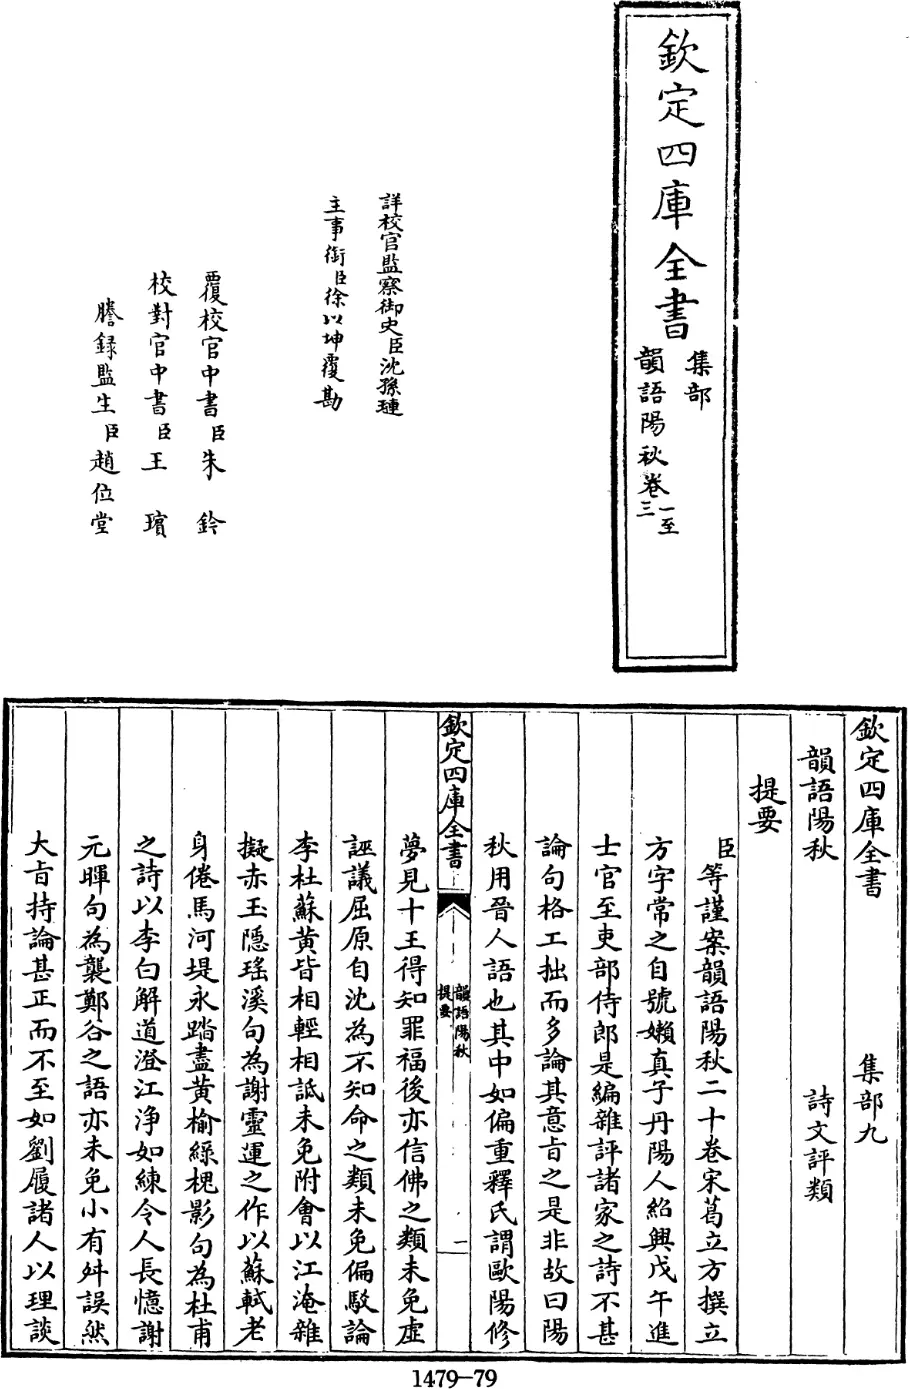 欽定四庫全書
集部
韻語陽秋卷一至三
詳校官監察御史臣沈孫璉
主事銜臣徐以坤覆勘
覆校官中書臣朱鈐
校對官中書臣王瓆
謄録監生臣趙位堂
欽定四庫全書 集部九
韻語陽秋 詩文評類
提要
臣等謹案韻語陽秋二十卷宋葛立方撰立
方字常之自號嬾真子丹陽人紹興戊午進
士官至吏部侍郎是編雜評諸家之詩不甚
論句格工拙而多論其意旨之是非故曰陽
秋用晉人語也其中如偏重釋氏謂歐陽修
欽定四庫全書
韻語陽秋
提要
一
夢見十王得知罪福後亦信佛之類未免虛
誣議屈原自沈為不知命之類未免偏駁論
李杜蘇黃皆相輕相詆未免附會以江淹雜
擬赤玉隱瑤溪句為謝靈運之作以蘇軾老
身倦馬河堤永踏盡黃榆緑槐影句為杜甫
之詩以李白解道澄江淨如練令人長憶謝
元暉句為襲鄭谷之語亦未免小有舛誤然
大旨持論甚正而不至如劉履諸人以理談
1479-79